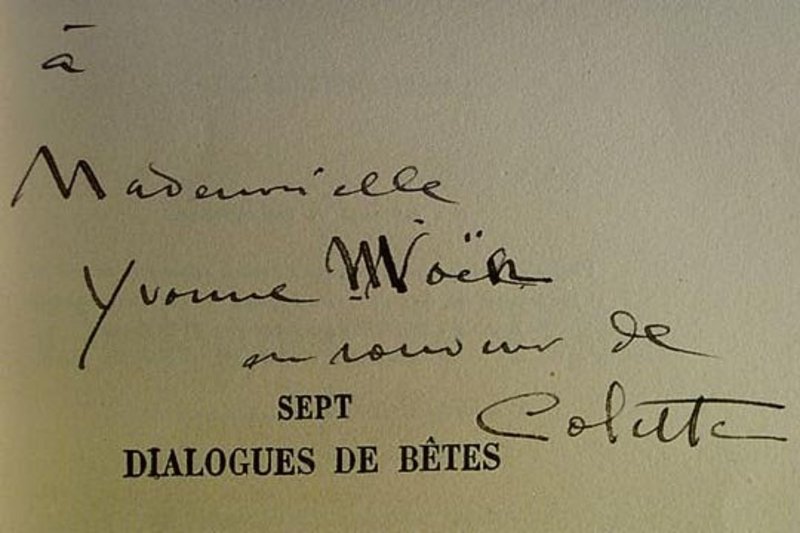 à
Mademoiselle
Yvonne Noël
en souvenir de
SEPT
Colette
DIALOGUES DE BÊTES